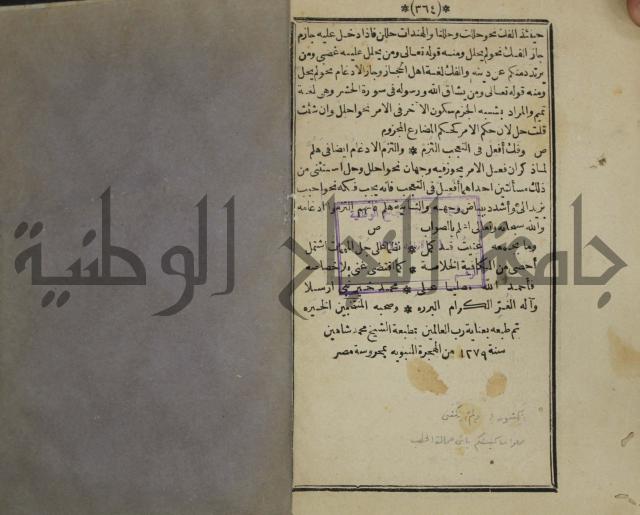 *(٣٦٤)*
حينئذ الفك نحو حللت وحللنا والهندات حللن فاذا دخل عليه جازم
جاز الفك نحو لم يحلل ومنه قوله تعالى ومن يحلل عليه غضبي ومن
يرتدد منكم عن دينه والفك لغة اهل الحجاز وجاز الادغام نحو لم يحل
ومنه قوله تعالى ومن يشاق الله ورسوله في سورة الحشر وهي لغة
تميم والمراد بشبه الجزم سكون الآخر في الامر نحو احلل وان شئت
قلت حل لان حكم الامر كحكم المضارع المجزوم
ص وفك أفعل في التعجب التزم * والتزم الادغام ايضا في هلم
لما ذكر ان فعل الامر يجوز فيه وجهان نحو احلل وحل استثنى من
ذلك مسألتين احداهما أفعل في التعجب فانه يجب فكه نحو احبب
بزيد الى وأشدد ببياض وجهه والثانية هلم فانهم التزموا ادغامه
والله سبحانه وتعالى اعلم بالصواب ص
وما بجمعه عنيت قد كمل * نظما على جل المهمات اشتمل
أحصى من الكافية الخلاصة * كما اقتضى غنى بلا خصاصة
فأحمد الله مصليا على * محمد خير نبي أرسلا
وآله الغر الكرام البرره * وصحبه المنتخبين الخيره
تم طبعه بعناية رب العالمين بمطبعة الشيخ محمد شاهين
سنة ١٢٧٩ من الهجرة النبويه بمحروسة مصر
جامعة النجاح الوطنية